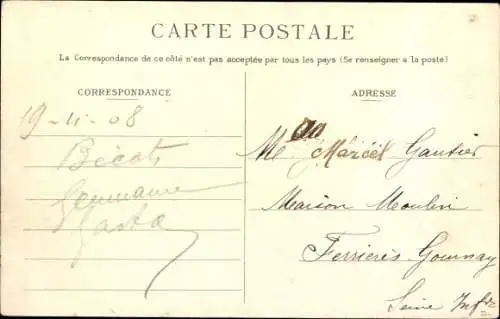 CARTE POSTALE
La Correspondance de ce côté n'est pas acceptée par tous les pays (Se renseigner a la poste)
CORRESPONDANCE
19-11-08
Bécots
Germaine
ADRESSE
M Marcel Gautier
Maison Moulin
Ferrières Gournay
Seine Infre